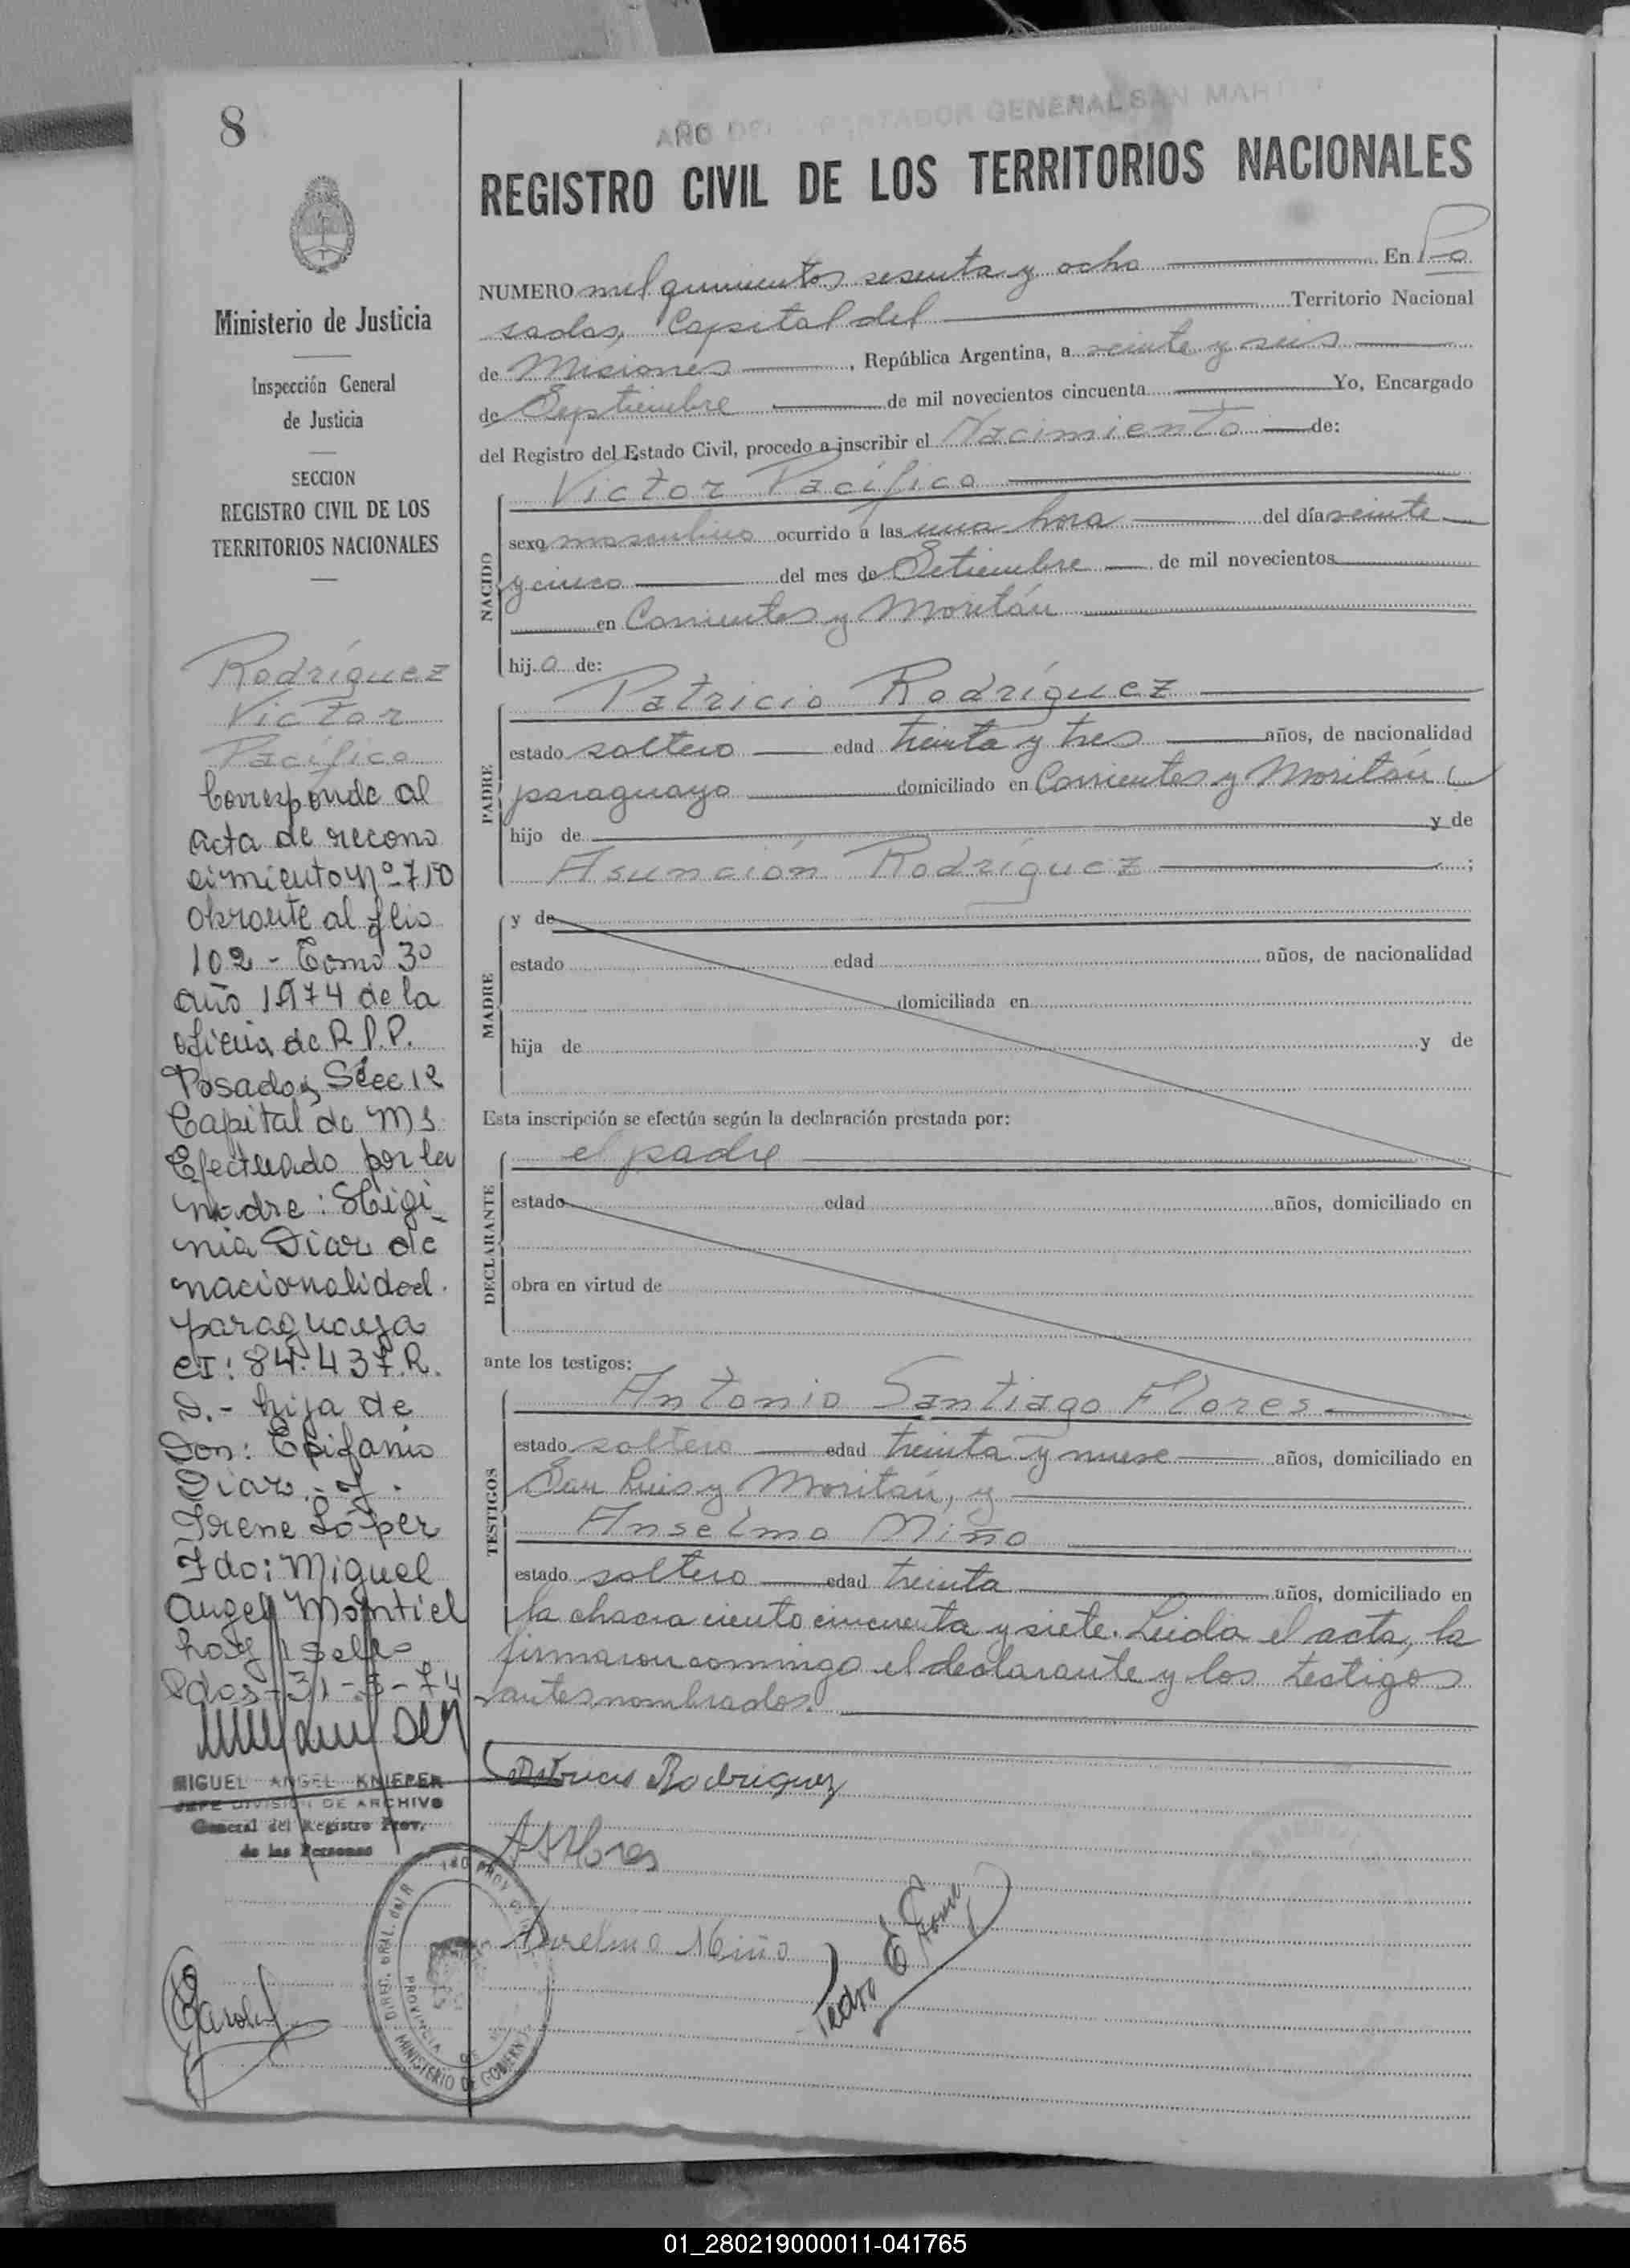 8
Ministerio de Justicia
Inspección General
de Justicia
SECCION
REGISTRO CIVIL DE LOS
TERRITORIOS NACIONALES
Rodríguez
Victor
Pacífico
Corresponde al
acta de recono
cimiento Nº 710
obrante al flio
102 - Tomo 3º
año 1974 de la
oficina de R.P.P.
Posadas Secc 1ª
Capital de Ms.
Efectuado por la
madre: Higi
nia Diaz de
nacionalidad
paraguaya
CI: 84.437.R.
D.- hija de
Don: Epifanio
Diaz.- y.
Irene López
Fdo: Miguel
Angel Montiel
hay 1 sello
Pdas - 31-5-74
MIGUEL ANGEL KNIEPER
JEFE DIVISION DE ARCHIVO
General del Registro Prov.
de las Personas
AÑO DEL LIBERTADOR GENERAL SAN MARTIN
REGISTRO CIVIL DE LOS TERRITORIOS NACIONALES
NUMERO mil quinientos sesenta y ocho En Po
sadas, Capital del Territorio Nacional
de Misiones, República Argentina, a veinte y seis
de Septiembre de mil novecientos cincuenta Yo, Encargado
del Registro del Estado Civil, procedo a inscribir el Nacimiento de:
Victor Pacífico
NACIDO
sexo masculino ocurrido a las una hora del día veinte
y cinco del mes de Setiembre de mil novecientos
en Corrientes y Moritán
hijo de:
Patricio Rodríguez
PADRE
estado soltero edad treinta y tres años, de nacionalidad
paraguayo domiciliado en Corrientes y Moritán
hijo de y de
Asunción Rodríguez ;
MADRE
y de
estado edad años, de nacionalidad
domiciliada en
hija de y de
Esta inscripción se efectúa según la declaración prestada por:
el padre
DECLARANTE
estado edad años, domiciliado en
obra en virtud de
ante los testigos:
Antonio Santiago Flores
TESTIGOS
estado soltero edad treinta y nueve años, domiciliado en
San Luis y Moritán, y
Anselmo Miño
estado soltero edad treinta años, domiciliado en
la chacra ciento cincuenta y siete. Leida el acta, la
firmaron conmigo el declarante y los testigos
antes nombrados.
Patricio Rodriguez
ASFlores
Anselmo Miño
Pedro E
DIREC. GRAL. del R
PROV.
PROVINCIA DE
MINISTERIO DE GOBIERNO
01_280219000011-041765